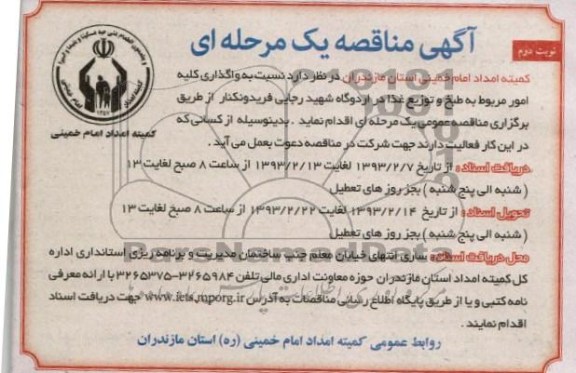 نوبت دوم
آگهی مناقصه یک مرحله ای
کمیته امداد امام خمینی
کمیته امداد امام خمینی استان مازندران در نظر دارد نسبت به واگذاری کلیه
امور مربوط به طبخ و توزیع غذا در اردوگاه شهید رجایی فریدونکنار از طریق
برگزاری مناقصه عمومی یک مرحله ای اقدام نماید . بدینوسیله از کسانی که
در این کار فعالیت دارند جهت شرکت در مناقصه دعوت بعمل می آید .
دریافت اسناد : از تاریخ ۱۳۹۳/۲/۷ لغایت ۱۳۹۳/۲/۱۳ از ساعت ۸ صبح لغایت ۱۳
( شنبه الی پنج شنبه ) بجز روز های تعطیل
تحویل اسناد : از تاریخ ۱۳۹۳/۲/۱۴ لغایت ۱۳۹۳/۲/۲۲ از ساعت ۸ صبح لغایت ۱۳
( شنبه الی پنج شنبه ) بجز روز های تعطیل
محل دریافت اسناد: ساری انتهای خیابان معلم جنب ساختمان مدیریت و برنامه ریزی استانداری اداره
کل کمیته امداد استان مازندران حوزه معاونت اداری مالی تلفن ۳۲۶۵۹۸۴-۳۲۶۵۳۷۵ با ارائه معرفی
نامه کتبی و یا از طریق پایگاه اطلاع رسانی مناقصات به آدرس www.iets.mporg.ir جهت دریافت اسناد
اقدام نمایند .
روابط عمومی کمیته امداد امام خمینی (ره) استان مازندران